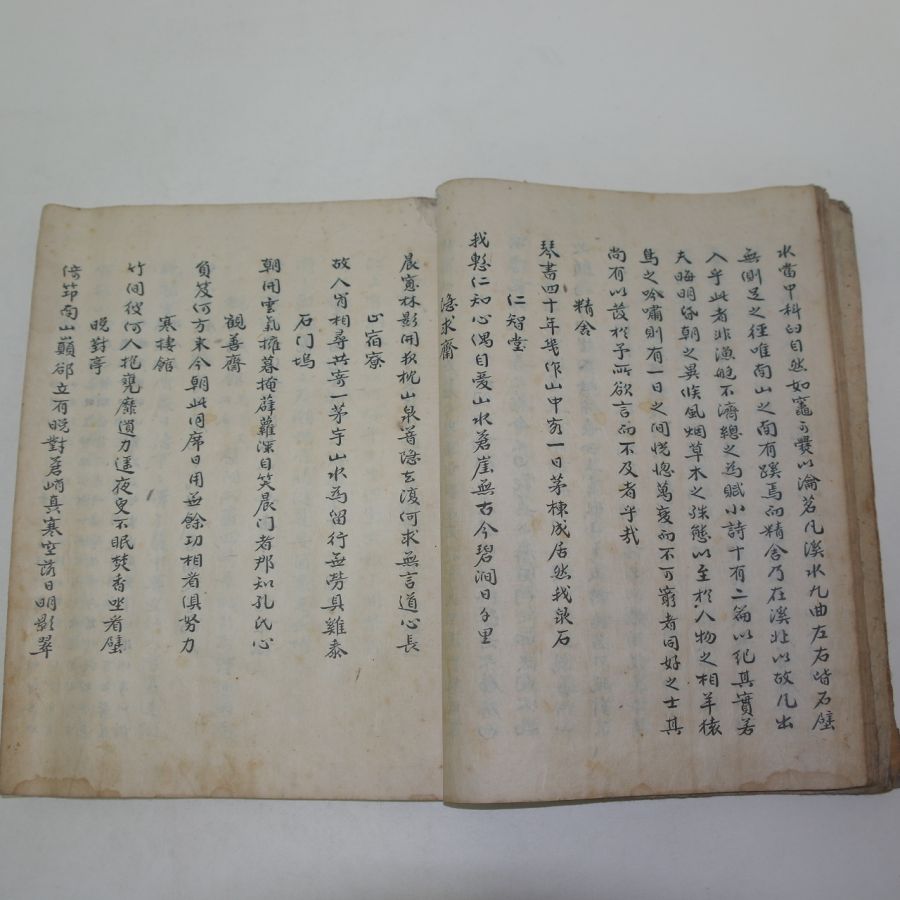 水當中科臼自然如竈可爨以瀹茗凡溪水九曲左右皆石壁
無側足之徑唯南山之南有蹊焉而精舍乃在溪北以故凡出
入乎此者非漁艇不濟總之為賦小詩十有二篇以紀其實若
夫晦明昏朝之異候風烟草木之殊態以至於人物之相羊猿
鳥之吟嘯則有一日之間恍惚萬變而不可窮者同好之士其
尚有以發於予所欲言而不及者乎哉
精舍
琴書四十年幾作山中客一日茅棟成居然我泉石
仁智堂
我慙仁知心偶自愛山水蒼崖無古今碧澗日千里
隐求齋
晨窓林影開夜枕山泉響隐去復何求無言道心長
止宿寮
故人肯相尋共寄一茅宇山水為留行無勞具雞黍
石门塢
朝開雲氣擁暮掩薜蘿深自笑晨门者那知孔氏心
觀善齋
負笈何方來今朝此同席日用無餘功相看俱努力
寒棲館
竹间彼何人抱甕靡遺力遥夜更不眠焚香坐看壁
晩對亭
倚筇南山巓郤立有晩對蒼峭矗寒空落日明影翠